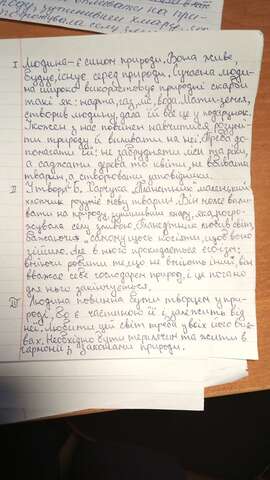 I Людина - є сином природи. Вона живе,
будує, існує серед природи. Сучасна люди-
на широко використовує природні скарби
такі як: нафта, газ, ліс, вода. Мати-земля,
створив людину, дала їй все це у подарунок.
Кожен з нас повинен навчитися розумі-
ти природу і впливати на неї. Треба до-
помагати їй: не забруднювати ліси та ріки,
а саджати дерева та квіти, не вбивати
тварин, а створювати заповідники.
II У творі Б. Харчука маленький
хлопчик розуміє мову тварин. Він може впли-
вати на природу, зупинивши хмару, яка погро-
жувала селу зливою. любив світ,
бажаючи самому щось посіяти, щоб воно
зійшло. Але в ньому прокидається егоїзм:
вміючи робити те що не вміють інші, він
вважає себе господарем природи, і це погано
для нього закінчується.
III Людина повинна бути творцем у при-
роді, бо є частиною її і залежить від
неї. Любити цей світ треба у всіх його
вах. Необхідно бути терплячим та жити в
гармонії з законами природи.